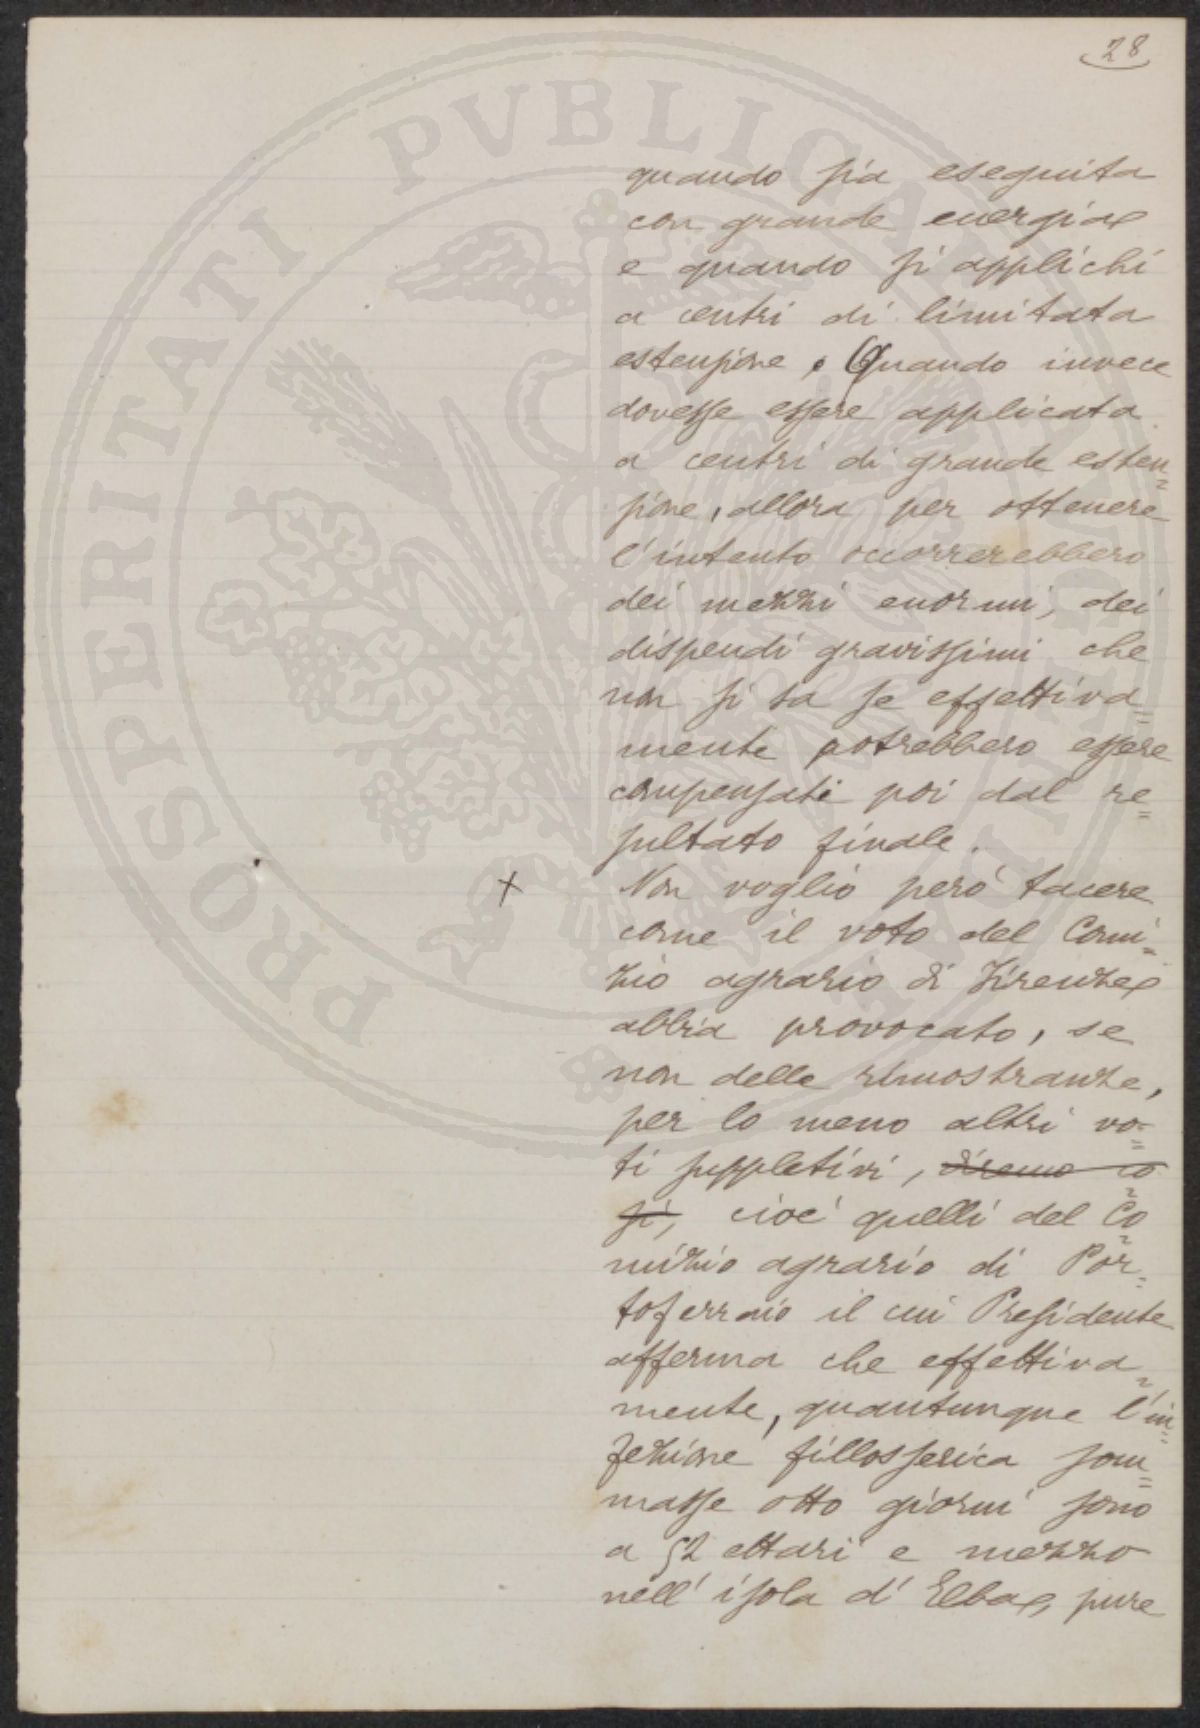 28
quando sia eseguita
con grande energia
e quando si applichi
a centri di limitata
estensione. Quando invece
dovesse essere applicata
a centri di grande esten=
sione, allora per ottenere
l'intento occorrerebbero
dei mezzi enormi, dei
dispendi gravissimi che
non si sa se effettiva=
mente potrebbero essere
compensati poi dal re=
sultato finale.
+ Non voglio però tacere
come il voto del Comi=
zio agrario di Firenze
abbia provocato, se
non delle rimostranze,
per lo meno altri vo=
ti suppletivi, diremo co=
sì, cioè quelli del Co=
mizio agrario di Por=
toferraio il cui Presidente
afferma che effettiva=
mente, quantunque l'in=
fezione fillosserica som=
masse otto giorni sono
a 52 ettari e mezzo
nell'isola d'Elba, pure
PROSPERITATI PVBLICAE AVGENDAE